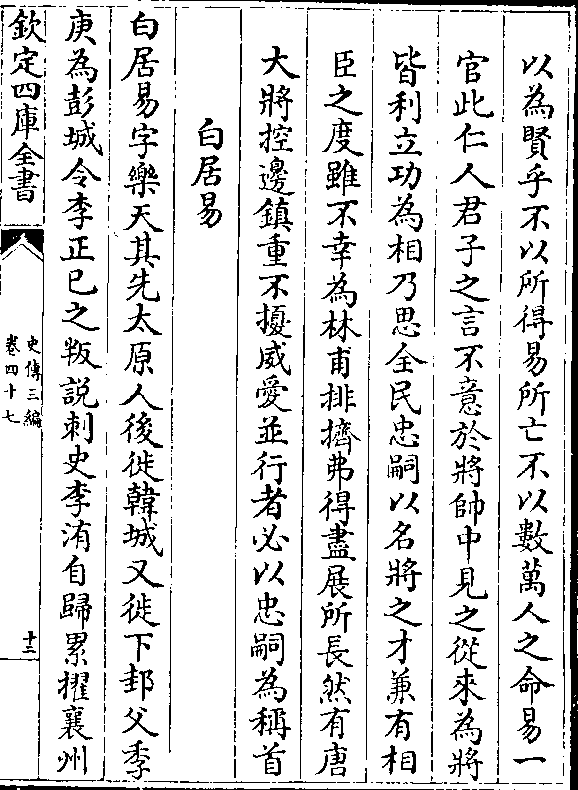 以為賢乎不以所得易所亡不以數萬人之命易一
官此仁人君子之言不意於將帥中見之從來為將
皆利立功為相乃思全民忠嗣以名將之才兼有相
臣之度雖不幸為林甫排擠弗得盡展所長然有唐
大將控邊鎮重不擾威愛並行者必以忠嗣為稱首
白居易
白居易字樂天其先太原人後徙韓城又徙下邽父季
庚為彭城令李正已之叛説刺史李洧自歸累擢襄州
欽定四庫全書
史傳三編
卷四十七
十三